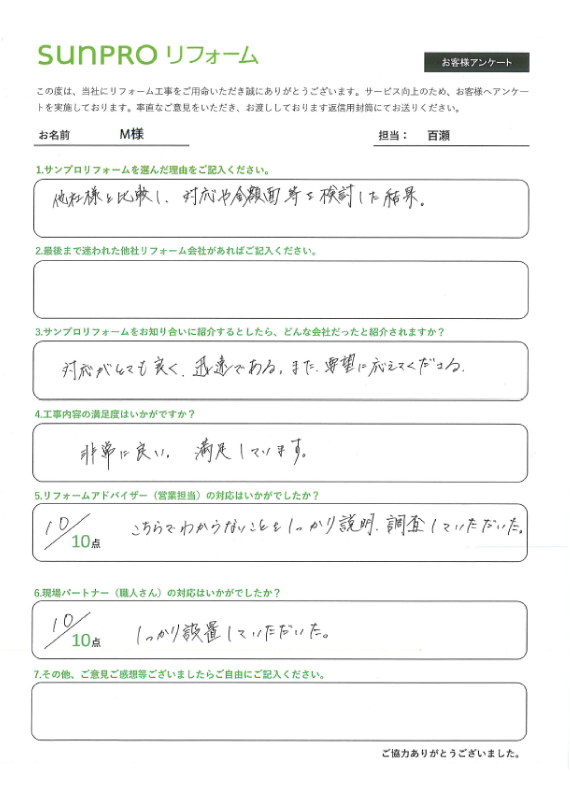 SUNPRO リフォーム
お客様アンケート
この度は、当社にリフォーム工事をご用命いただき誠にありがとうございます。サービス向上のため、お客様へアンケー
トを実施しております。率直なご意見をいただき、お渡ししております返信用封筒にてお送りください。
お名前 M様 担当： 百瀬
1.サンプロリフォームを選んだ理由をご記入ください。
他社様と比較し、対応や金額面等を検討した結果。
2.最後まで迷われた他社リフォーム会社があればご記入ください。
3.サンプロリフォームをお知り合いに紹介するとしたら、どんな会社だったと紹介されますか？
対応がとても良く、迅速である。また、要望に応えてくださる。
4.工事内容の満足度はいかがですか？
非常に良い。 満足しています。
5.リフォームアドバイザー（営業担当）の対応はいかがでしたか？
10/10点 こちらでわからないこともしっかり説明、調査していただいた。
6.現場パートナー（職人さん）の対応はいかがでしたか？
10/10点 しっかり設置していただいた。
7.その他、ご意見ご感想等ございましたらご自由にご記入ください。
ご協力ありがとうございました。